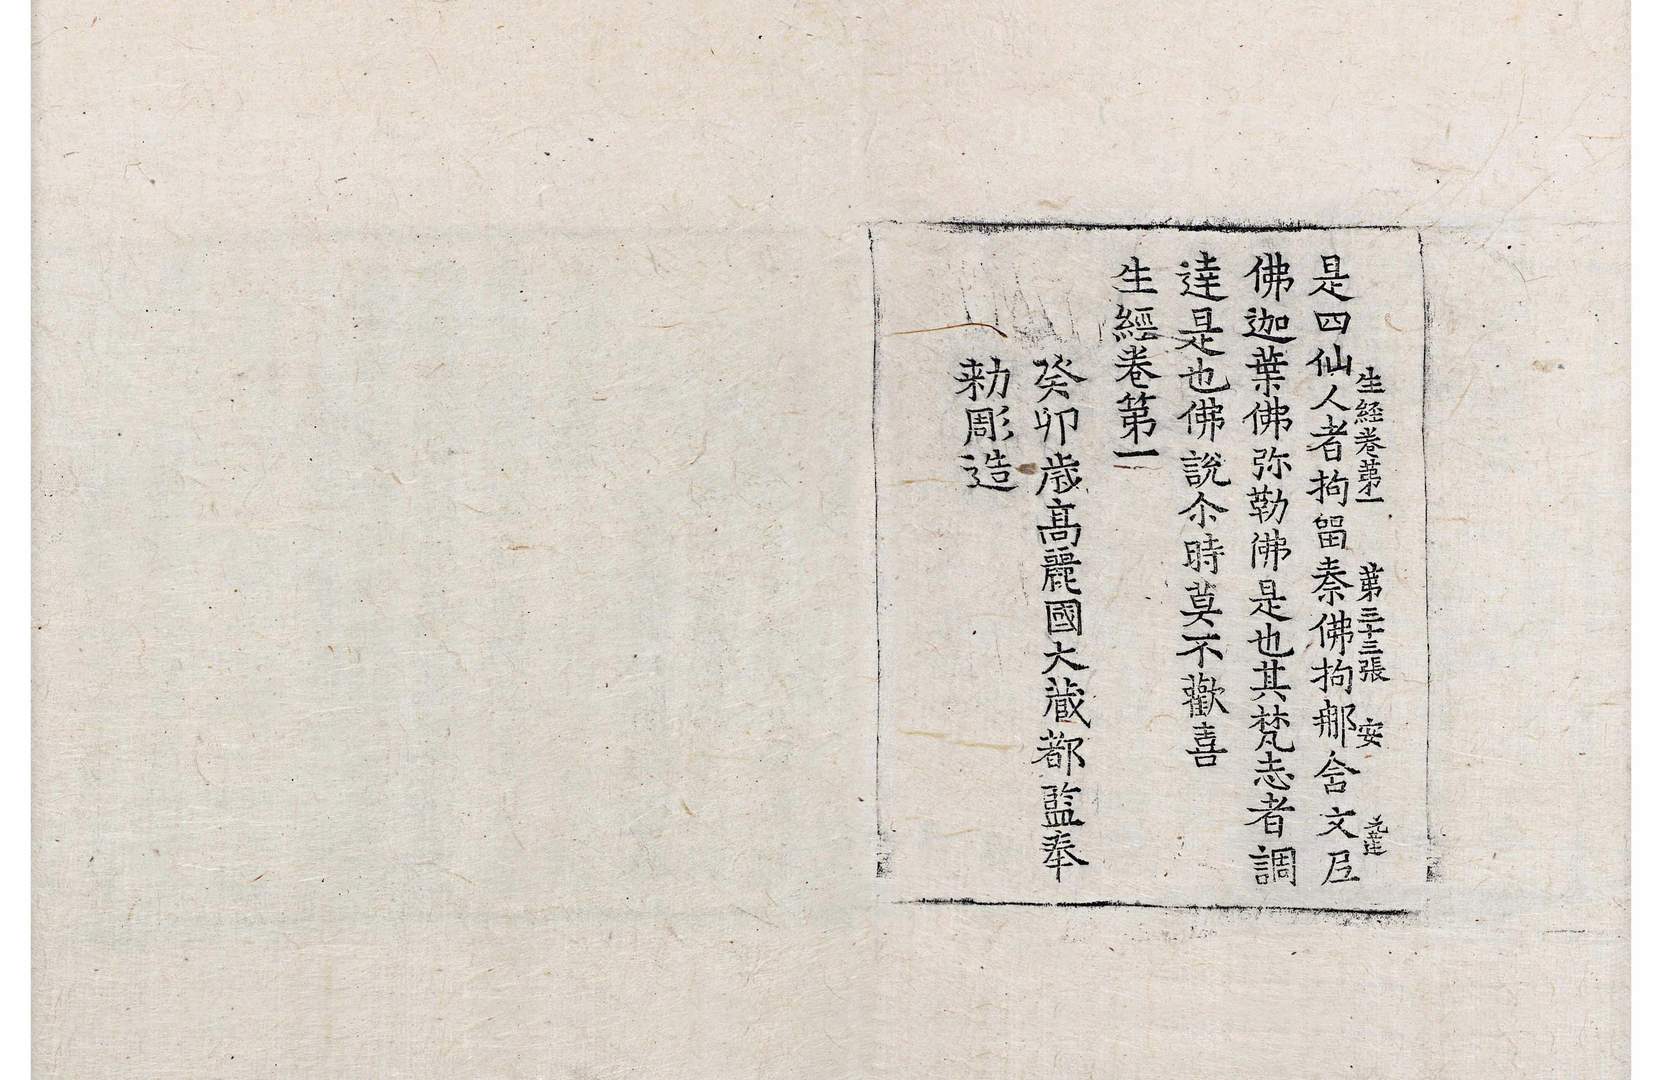 生經卷第一 第三十三張 安
是四仙人者拘留秦佛拘郍含文尼
佛迦葉佛弥勒佛是也其梵志者調
逹是也佛說尒時莫不歡喜
生經卷第一
癸卯歲高麗國大藏都監奉
勑彫造